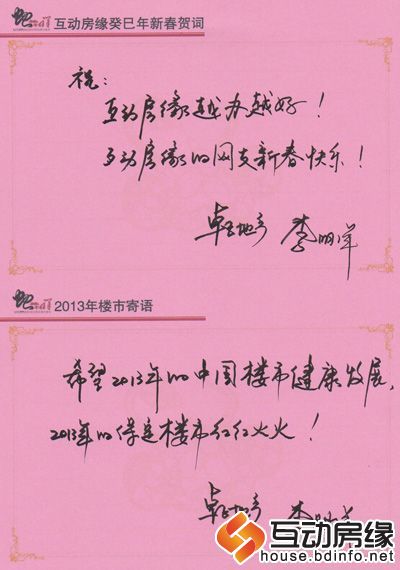 互动房缘癸巳年新春贺词
祝：
互动房缘越办越好！
互动房缘的网友新春快乐！
卓正地产 李明洋
2013年楼市寄语
希望2013年的中国楼市健康发展，
2013年的保定楼市红红火火！
卓正地产
互动房缘
house.bdinfo.net